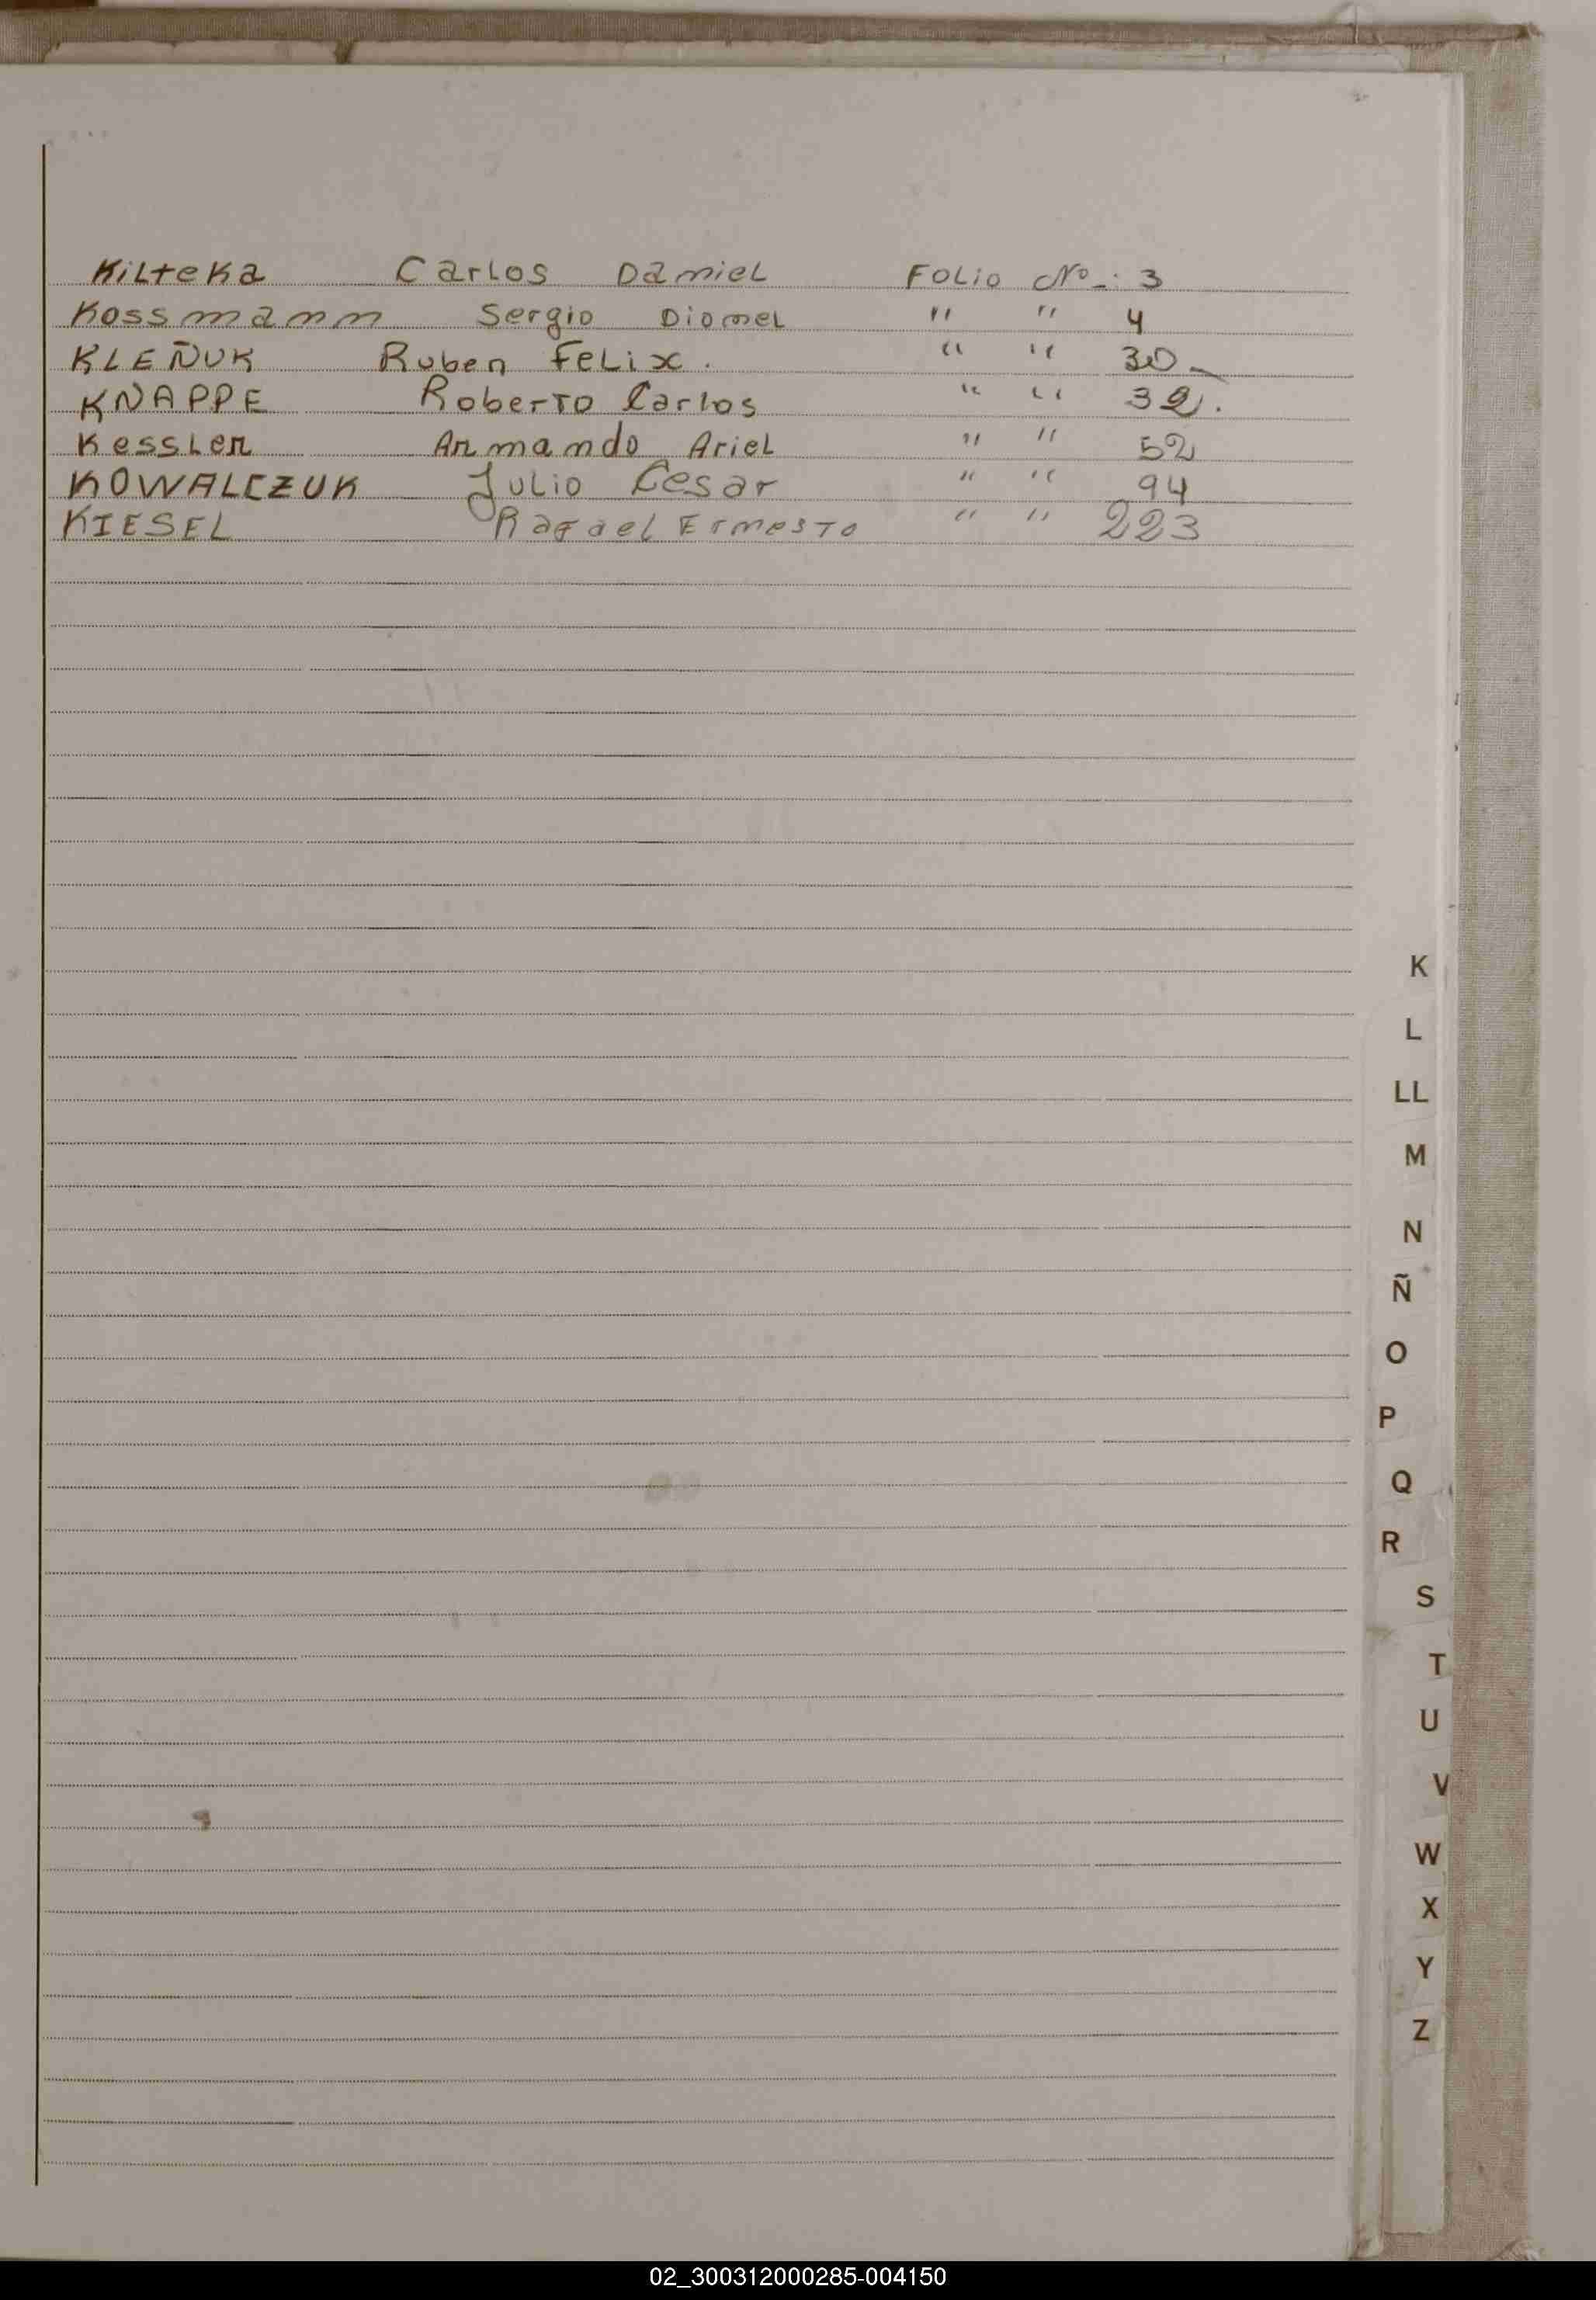 Kilteka Carlos Daniel Folio Nº-: 3
Kossmann Sergio Dionel " " 4
KLEÑUK Ruben Felix. " " 30-
KNAPPE Roberto Carlos " " 32.
Kessler Armando Ariel " " 52
KOWALCZUK Julio Cesar " " 94
KIESEL Rafael Ernesto " " 223
K
L
LL
M
N
Ñ
O
P
Q
R
S
T
U
V
W
X
Y
Z
02_300312000285-004150